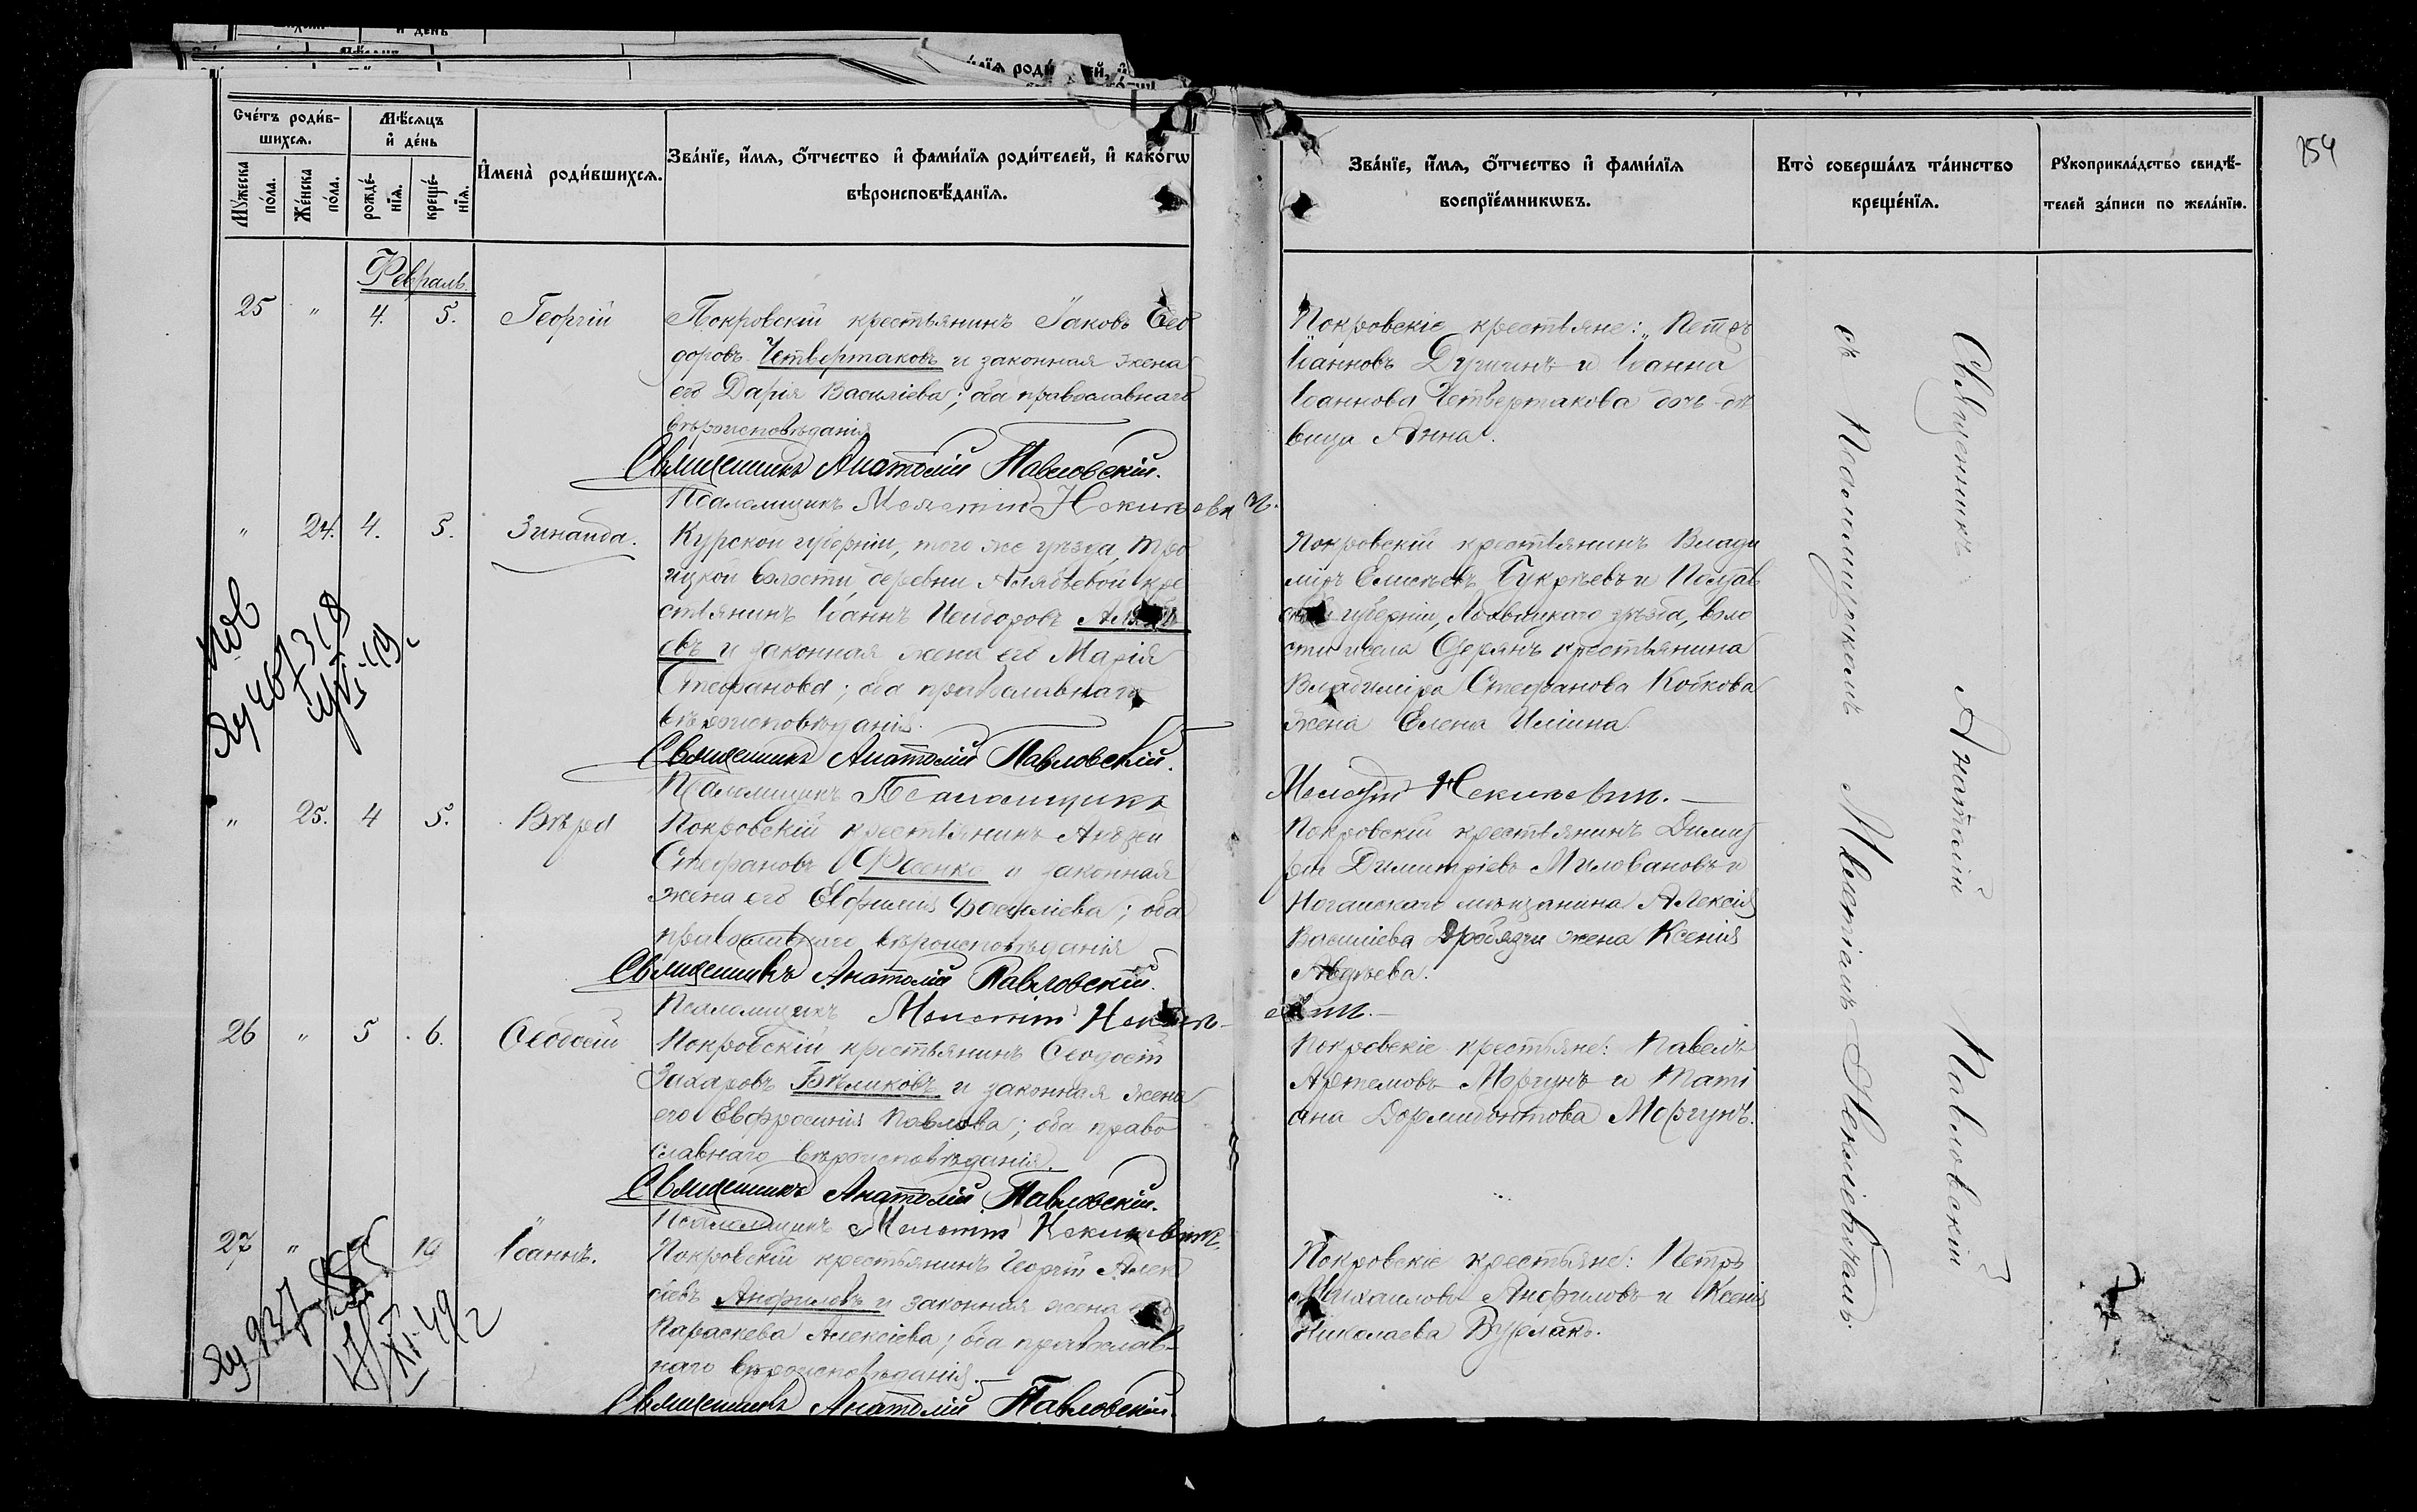 Счетъ родив-
шихся.
Мѣсяцъ
и день
Мужеска
пола.
Женска
пола.
рожде-
нія.
креще-
нія.
Имена родившихся.
Званіе, имя, отчество и фамилія родителей, и какогω
вѣроисповѣданія.
Званіе, имя, отчество и фамилія
воспріемникωвъ.
Кто совершалъ таинство
крещенія.
Рукоприкладство свидѣ-
телей записи по желанію.
254
Февраль.
25 " 4. 5. Георгій
Покровскій крестьянинъ Іаковъ Ѳео
доровъ Четвертаковъ и законная жена
его Дарія Василіева; оба православнаго
вѣроисповѣданія
Священникъ Анатолій Павловскій.
Псаломщикъ Мелетій
Покровскіе крестьяне: Петръ
Іоанновъ и Іоанна
Іоаннова Четвертакова дочь дѣ
вица Анна.
" 24. 4. 5. Зинаида.
Курской губерніи, того же уѣзда, Тро
ицкой волости, деревни Алябьевой кре
стьянинъ Іоаннъ Исидоровъ
въ и законная жена его Марія
Стефанова; оба православнаго
вѣроисповѣданія.
Священникъ Анатолій Павловскій.
Псаломщикъ Псаломщикъ
Покровскій крестьянинъ Влади
міръ Елисѣевъ Букрѣевъ и Полтав
ской губерніи, Лохвицкаго уѣзда, воло
сти и села Озерянъ крестьянина
Владиміра Стефанова Кобкова
жена Елена Иліина
Мелетій
" 25. 4 5. Вѣра
Покровскій крестьянинъ Андрей
Стефановъ Фесенко и законная
жена его Евфимія Василіева; оба
православнаго вѣроисповѣданія
Священникъ Анатолій Павловскій.
Псаломщикъ Мелетій
Покровскій крестьянинъ Димит
рій Димитріевъ Миловановъ и
Ногайскаго мѣщанина Алексія
Василіева Дробязги жена Ксенія
Авдѣева.
26 " 5 6. Ѳеодосій
Покровскій крестьянинъ Ѳеодосій
Захаровъ Бѣликовъ и законная жена
его Евфросинія Павлова; оба право
славнаго вѣроисповѣданія.
Священникъ Анатолій Павловскій.
Псаломщикъ Мелетій
Покровскіе крестьяне: Павелъ
Артемовъ Моргунъ и Таті
ана Дормидонтова Моргунъ.
27 " 10 Іоаннъ.
Покровскій крестьянинъ Георгій Алек
сіевъ Анфиловъ и законная жена его
Параскева Алексіева; оба православ-
наго вѣроисповѣданія.
Священникъ Анатолій Павловскій.
Покровскіе крестьяне: Петръ
Михаиловъ Анфиловъ и Ксенія
Николаева Бурлакъ.
Священникъ Анатолій Павловскій
съ Псаломщикомъ Мелетіемъ